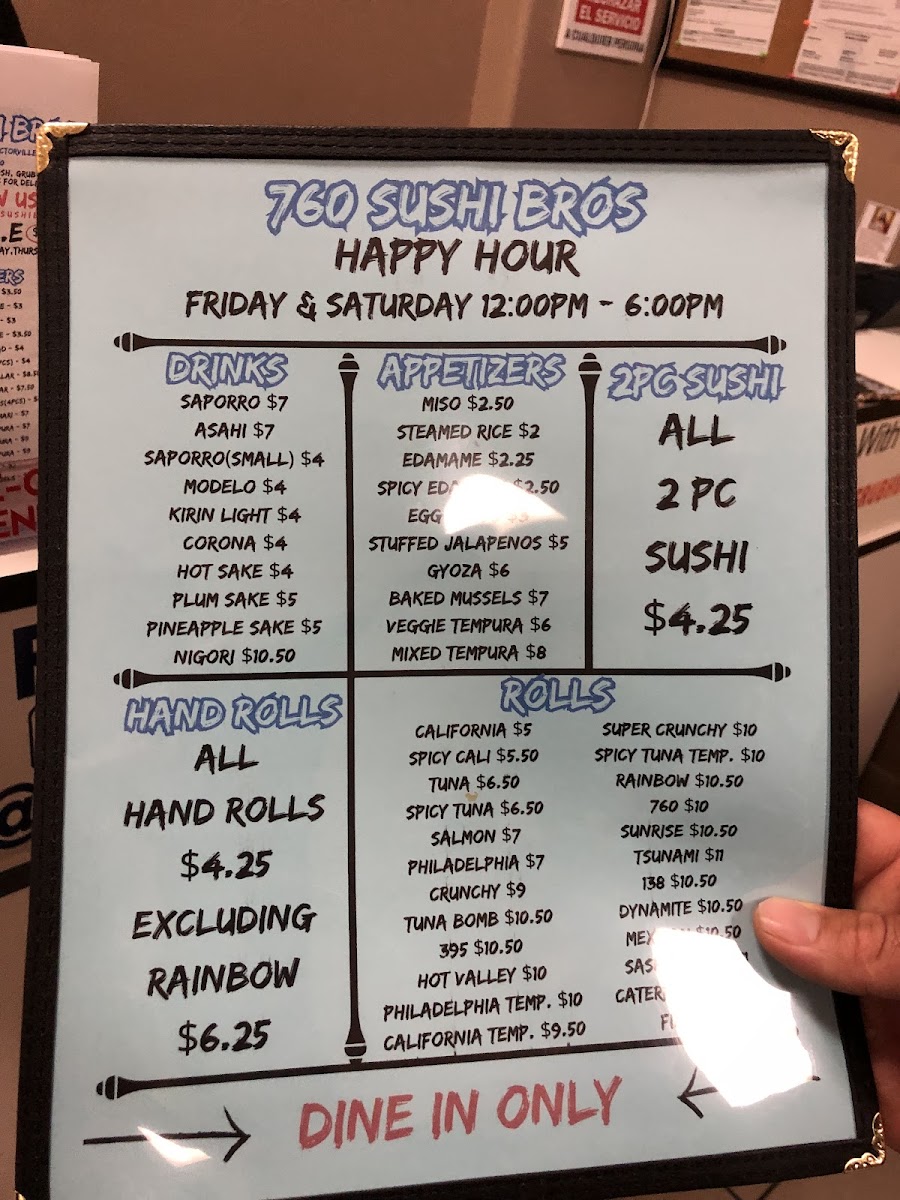 RECHAZAR
EL SERVICIO
A CUALQUIER PERSONA
760 SUSHI BROS
HAPPY HOUR
FRIDAY & SATURDAY 12:00PM - 6:00PM
DRINKS
SAPORRO $7
ASAHI $7
SAPORRO(SMALL) $4
MODELO $4
KIRIN LIGHT $4
CORONA $4
HOT SAKE $4
PLUM SAKE $5
PINEAPPLE SAKE $5
NIGORI $10.50
APPETIZERS
MISO $2.50
STEAMED RICE $2
EDAMAME $2.25
SPICY $2.50
EGG
STUFFED JALAPENOS $5
GYOZA $6
BAKED MUSSELS $7
VEGGIE TEMPURA $6
MIXED TEMPURA $8
2PC SUSHI
ALL
2 PC
SUSHI
$4.25
HAND ROLLS
ALL
HAND ROLLS
$4.25
EXCLUDING
RAINBOW
$6.25
ROLLS
CALIFORNIA $5
SPICY CALI $5.50
TUNA $6.50
SPICY TUNA $6.50
SALMON $7
PHILADELPHIA $7
CRUNCHY $9
TUNA BOMB $10.50
395 $10.50
HOT VALLEY $10
PHILADELPHIA TEMP. $10
CALIFORNIA TEMP. $9.50
SUPER CRUNCHY $10
SPICY TUNA TEMP. $10
RAINBOW $10.50
760 $10
SUNRISE $10.50
TSUNAMI $11
138 $10.50
DYNAMITE $10.50
DINE IN ONLY
With